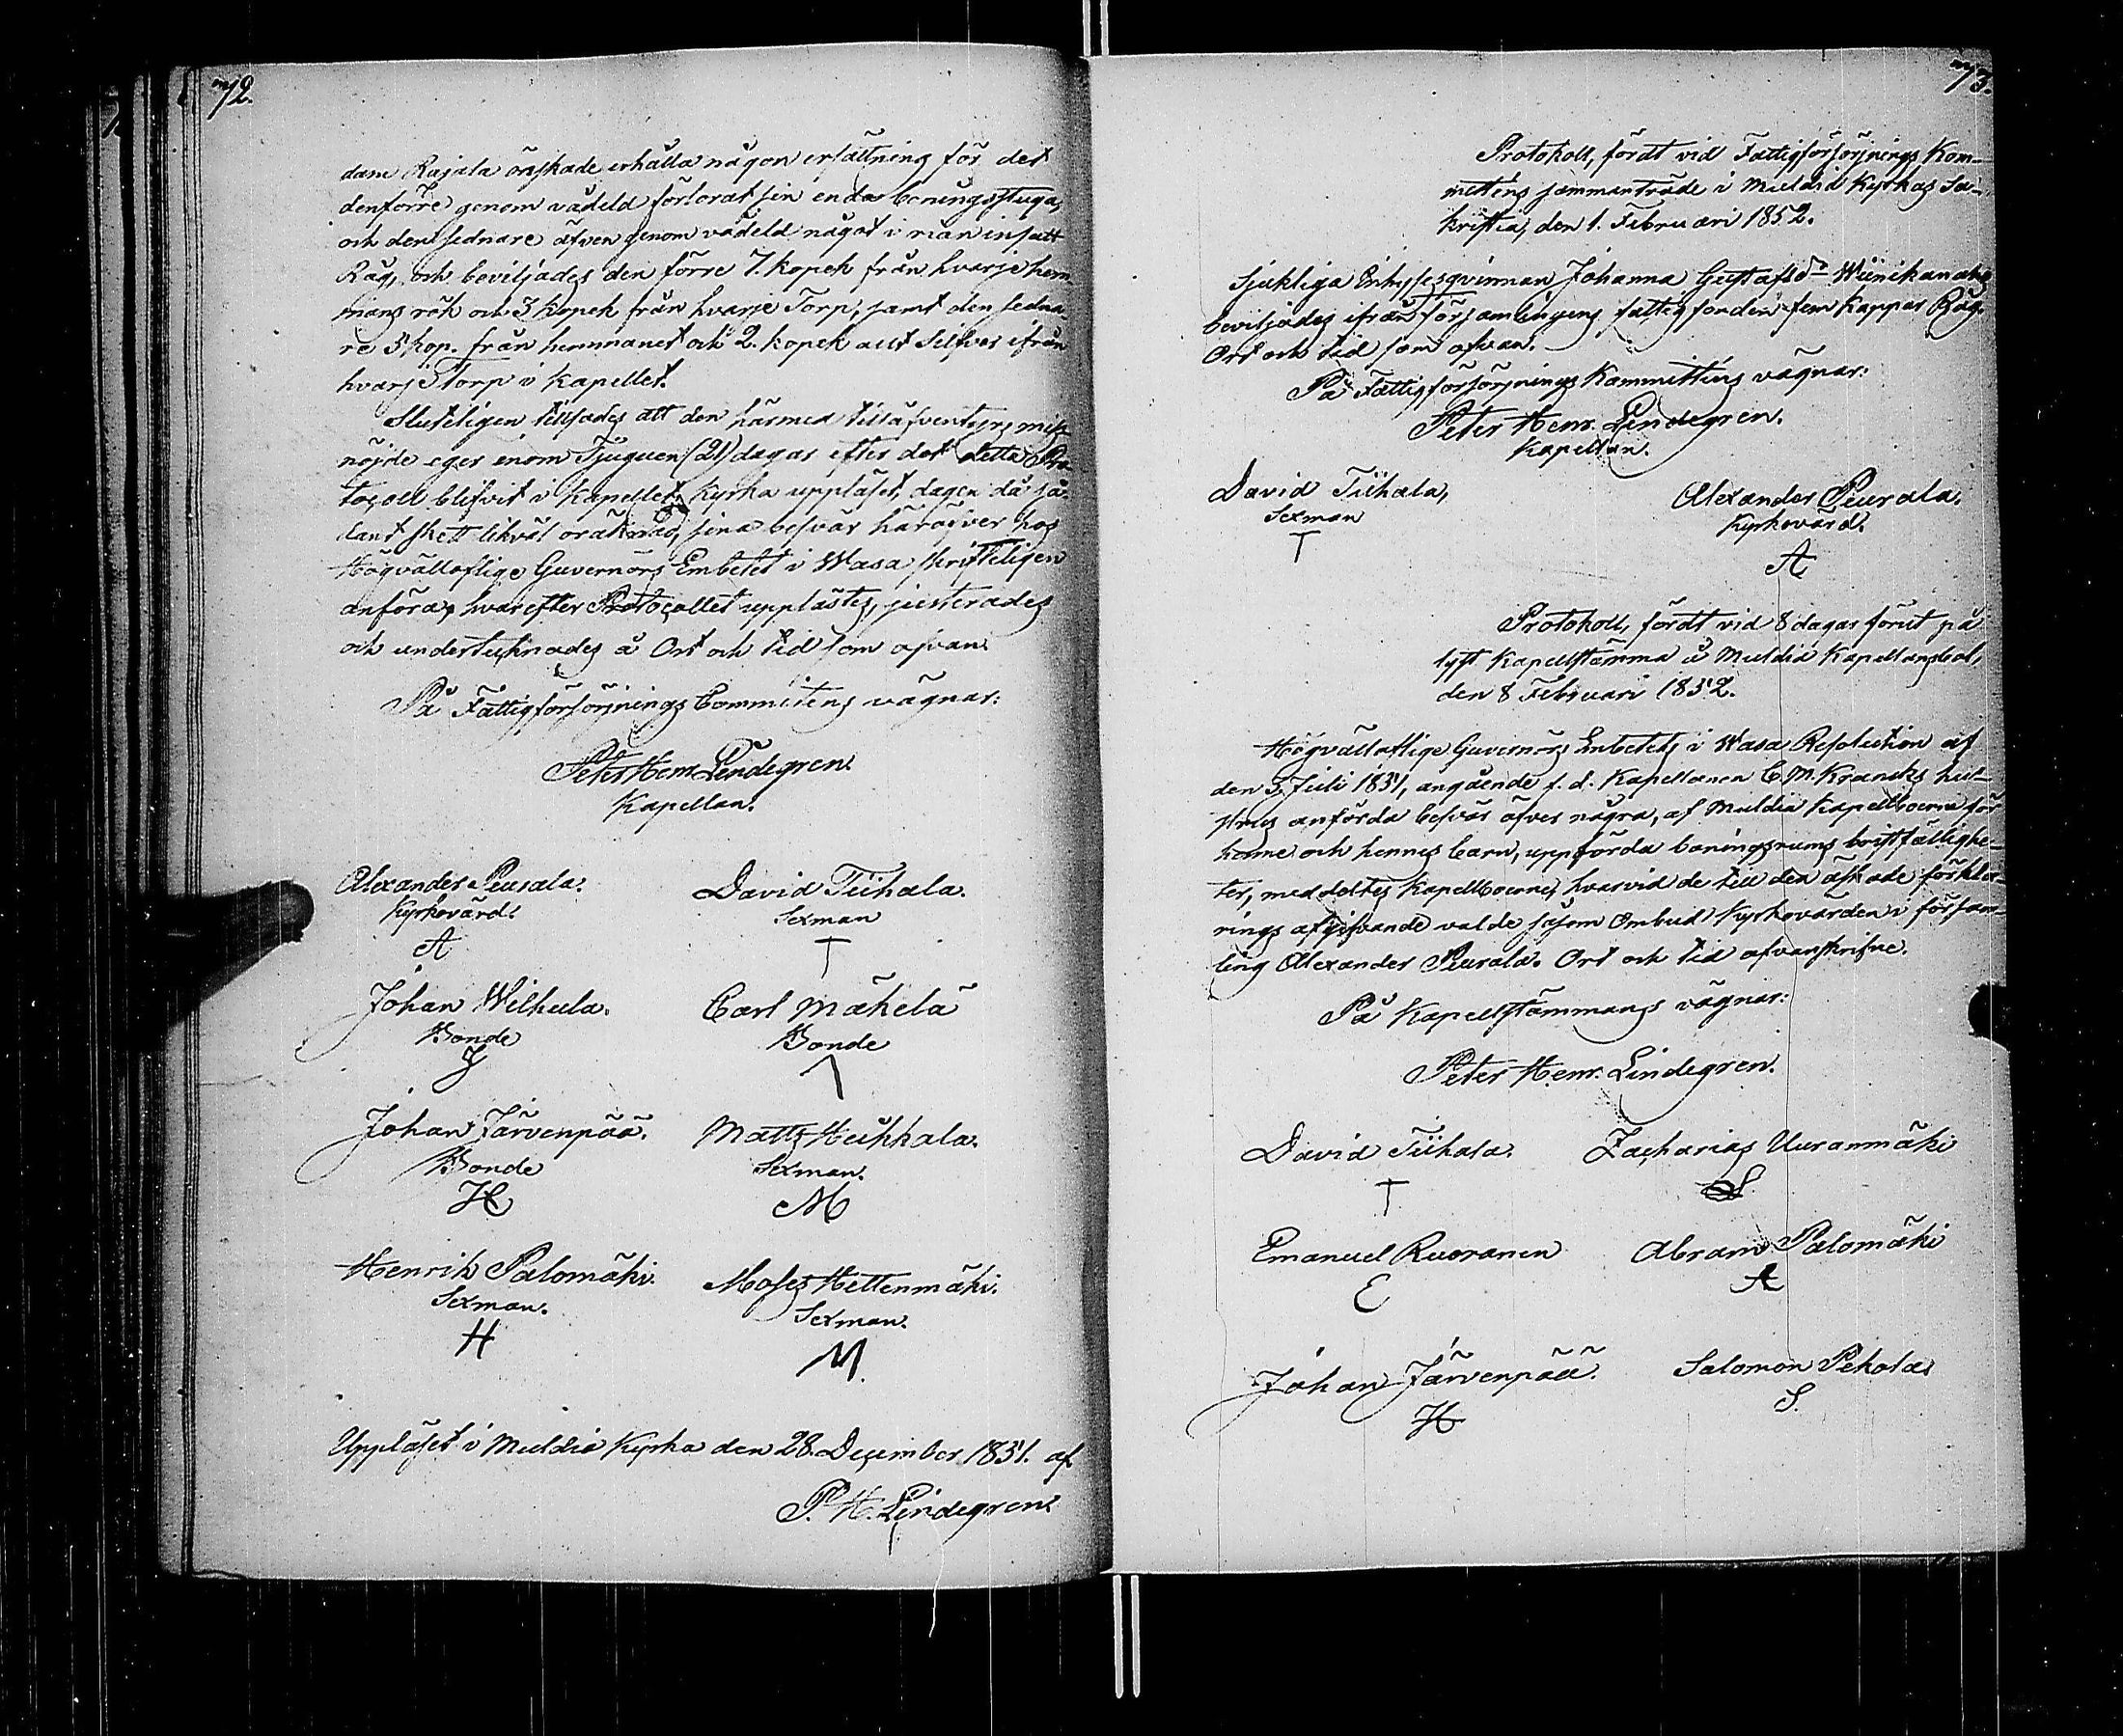 72.
dam Rajala önskade erhålla någon ersättning för det
denförre genom vådeld förlorat sin enda boningsstuga,
och den sednare äfven genom vådeld något i rian insatt
Råg, och beviljades den förre 7. kopek från hvarje hem¬
mans rök och 3 kopek från hvarje Torp, samt den sedna¬
re 5 kop. från hemmanet och 2. kopek allt Silfver ifrån
hvarje Torp i Kapellet.
Sluteligen tillsades att den härmed tilläfventyrs miss
nöjde eger inom Tjuguen (21) dagar efter det detta Pro
tocoll blifvit i Kapellets Kyrka uppläset, dagen då så¬
dant skett likväl oräknad, sina besvär häröfver hos
Högvälloflige Guvernörs Embetet i Wasa skrifteligen
anföra, hvarefter Protocollet upplästes, justerades
och undertecknades å Ort och tid som ofvan.
På Fattigförsörjnings Committéns vägnar:
Peter Henr. Lindegren.
Kapellan.
Alexander Peurala. David Tiihala.
Kyrkovärd. Sexman
A T
Johan Wilhula. Carl Mäkelä
Bonde Bonde
J
Johan Järvenpää. Matts Heikkala.
Bonde Sexman.
H M
Henrik Palomäki. Moses Hettenmäki.
Sexman. Sexman.
H M.
Uppläset i Multia Kyrka den 28. December 1851. af
P. H. Lindegren.
73.
Protokoll, fördt vid Fattigförsörjnings Kom¬
mitténs sammanträde i Multia Kyrkas Sa¬
kristia, den 1. Februari 1852.
Sjukliga Inhysesqvinnan Johanna Gustafsdr
beviljades ifrån församlingens fattigfonden fem Kappar Råg.
Ort och tid som ofvan.
På Fattigförsörjnings Kommitténs vägnar:
Peter Henr. Lindegren.
Kapellan.
David Tiihala, Alexander Peurala.
Sexman Kyrkovärd.
T A
Protokoll, fördt vid 8 dagar förut på
lyst Kapellstämma å Multia Kapellansbol,
den 8 Februari 1852.
Högvälloflige Guvernörs Embetets i Wasa Resolution af
den 3 Juli 1851, angående f. d. Kapellanen C. M. Krancks hu¬
strus anförda besvär öfver några, af Multia Kapellboerne för
henne och hennes barn, uppförda boningsrums bristfällighe¬
ter, meddeltes Kapellboerne, hvarvid de till den äskade förkla¬
rings afgifvande valde såsom Ombud Kyrkovärden i försam¬
ling Alexander Peurala. Ort och tid ofvanskrifne.
På Kapellstämmans vägnar:
Peter Henr. Lindegren.
David Tiihala. Zacharias Uuranmäki
T S
Emanuel Ruoranen Abram Palomäki
E A
Johan Järvenpää. Salomon Pekola
H S.